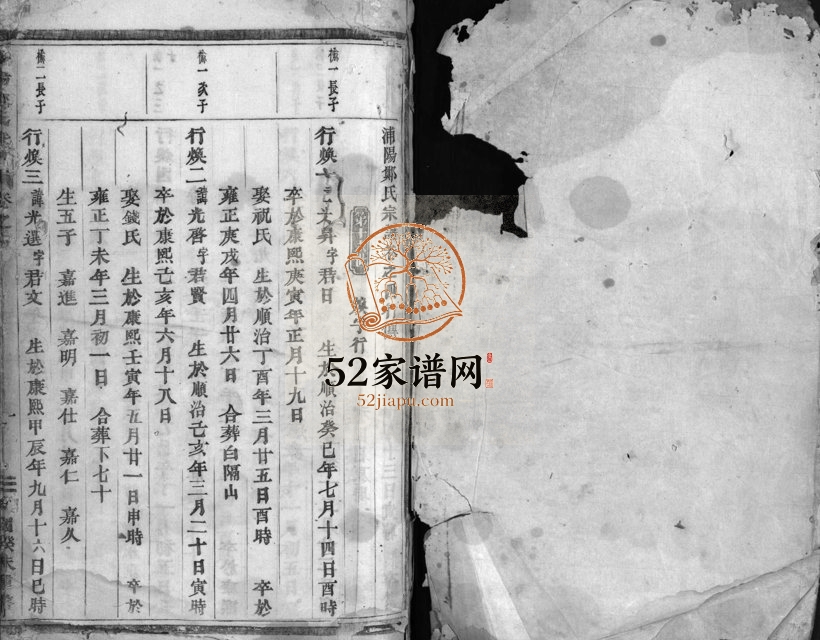 浦陽鄭氏宗
字行
橅一長子
行煥一
昇字君日 生於順治癸巳年七月十四日酉時
卒於康熙庚寅年正月十九日
娶祝氏 生於順治丁酉年三月廿五日酉時 卒於
雍正庚戌年四月廿六日 合葬白隔山
橅一次子
行煥二 諱光啓字君賢 生於順治己亥年三月二十日寅時
卒於康熙己亥年六月十八日
娶錢氏 生於康熙壬寅年五月廿一日申時 卒於
雍正丁未年三月初一日 合葬下七十
生五子 嘉進 嘉明 嘉仕 嘉仁 嘉久
橅二長子
行煥三 諱光選字君文 生於康熙甲辰年九月十六日巳時
52家谱网
52jiapu.com